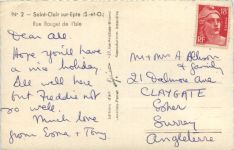 Nº 2 - Saint-Clair sur-Epte (S-et-O)
Rue Rouget de l'Isle
Dear all
Hope you'll have
a nice holiday.
All well here
but Freddie not
so well.
Much love
from Esma + Tony
Mr + Mrs A
& family
21 Dalmore Ave
CLAYGATE
Esher
Surrey
Angleterre
RF